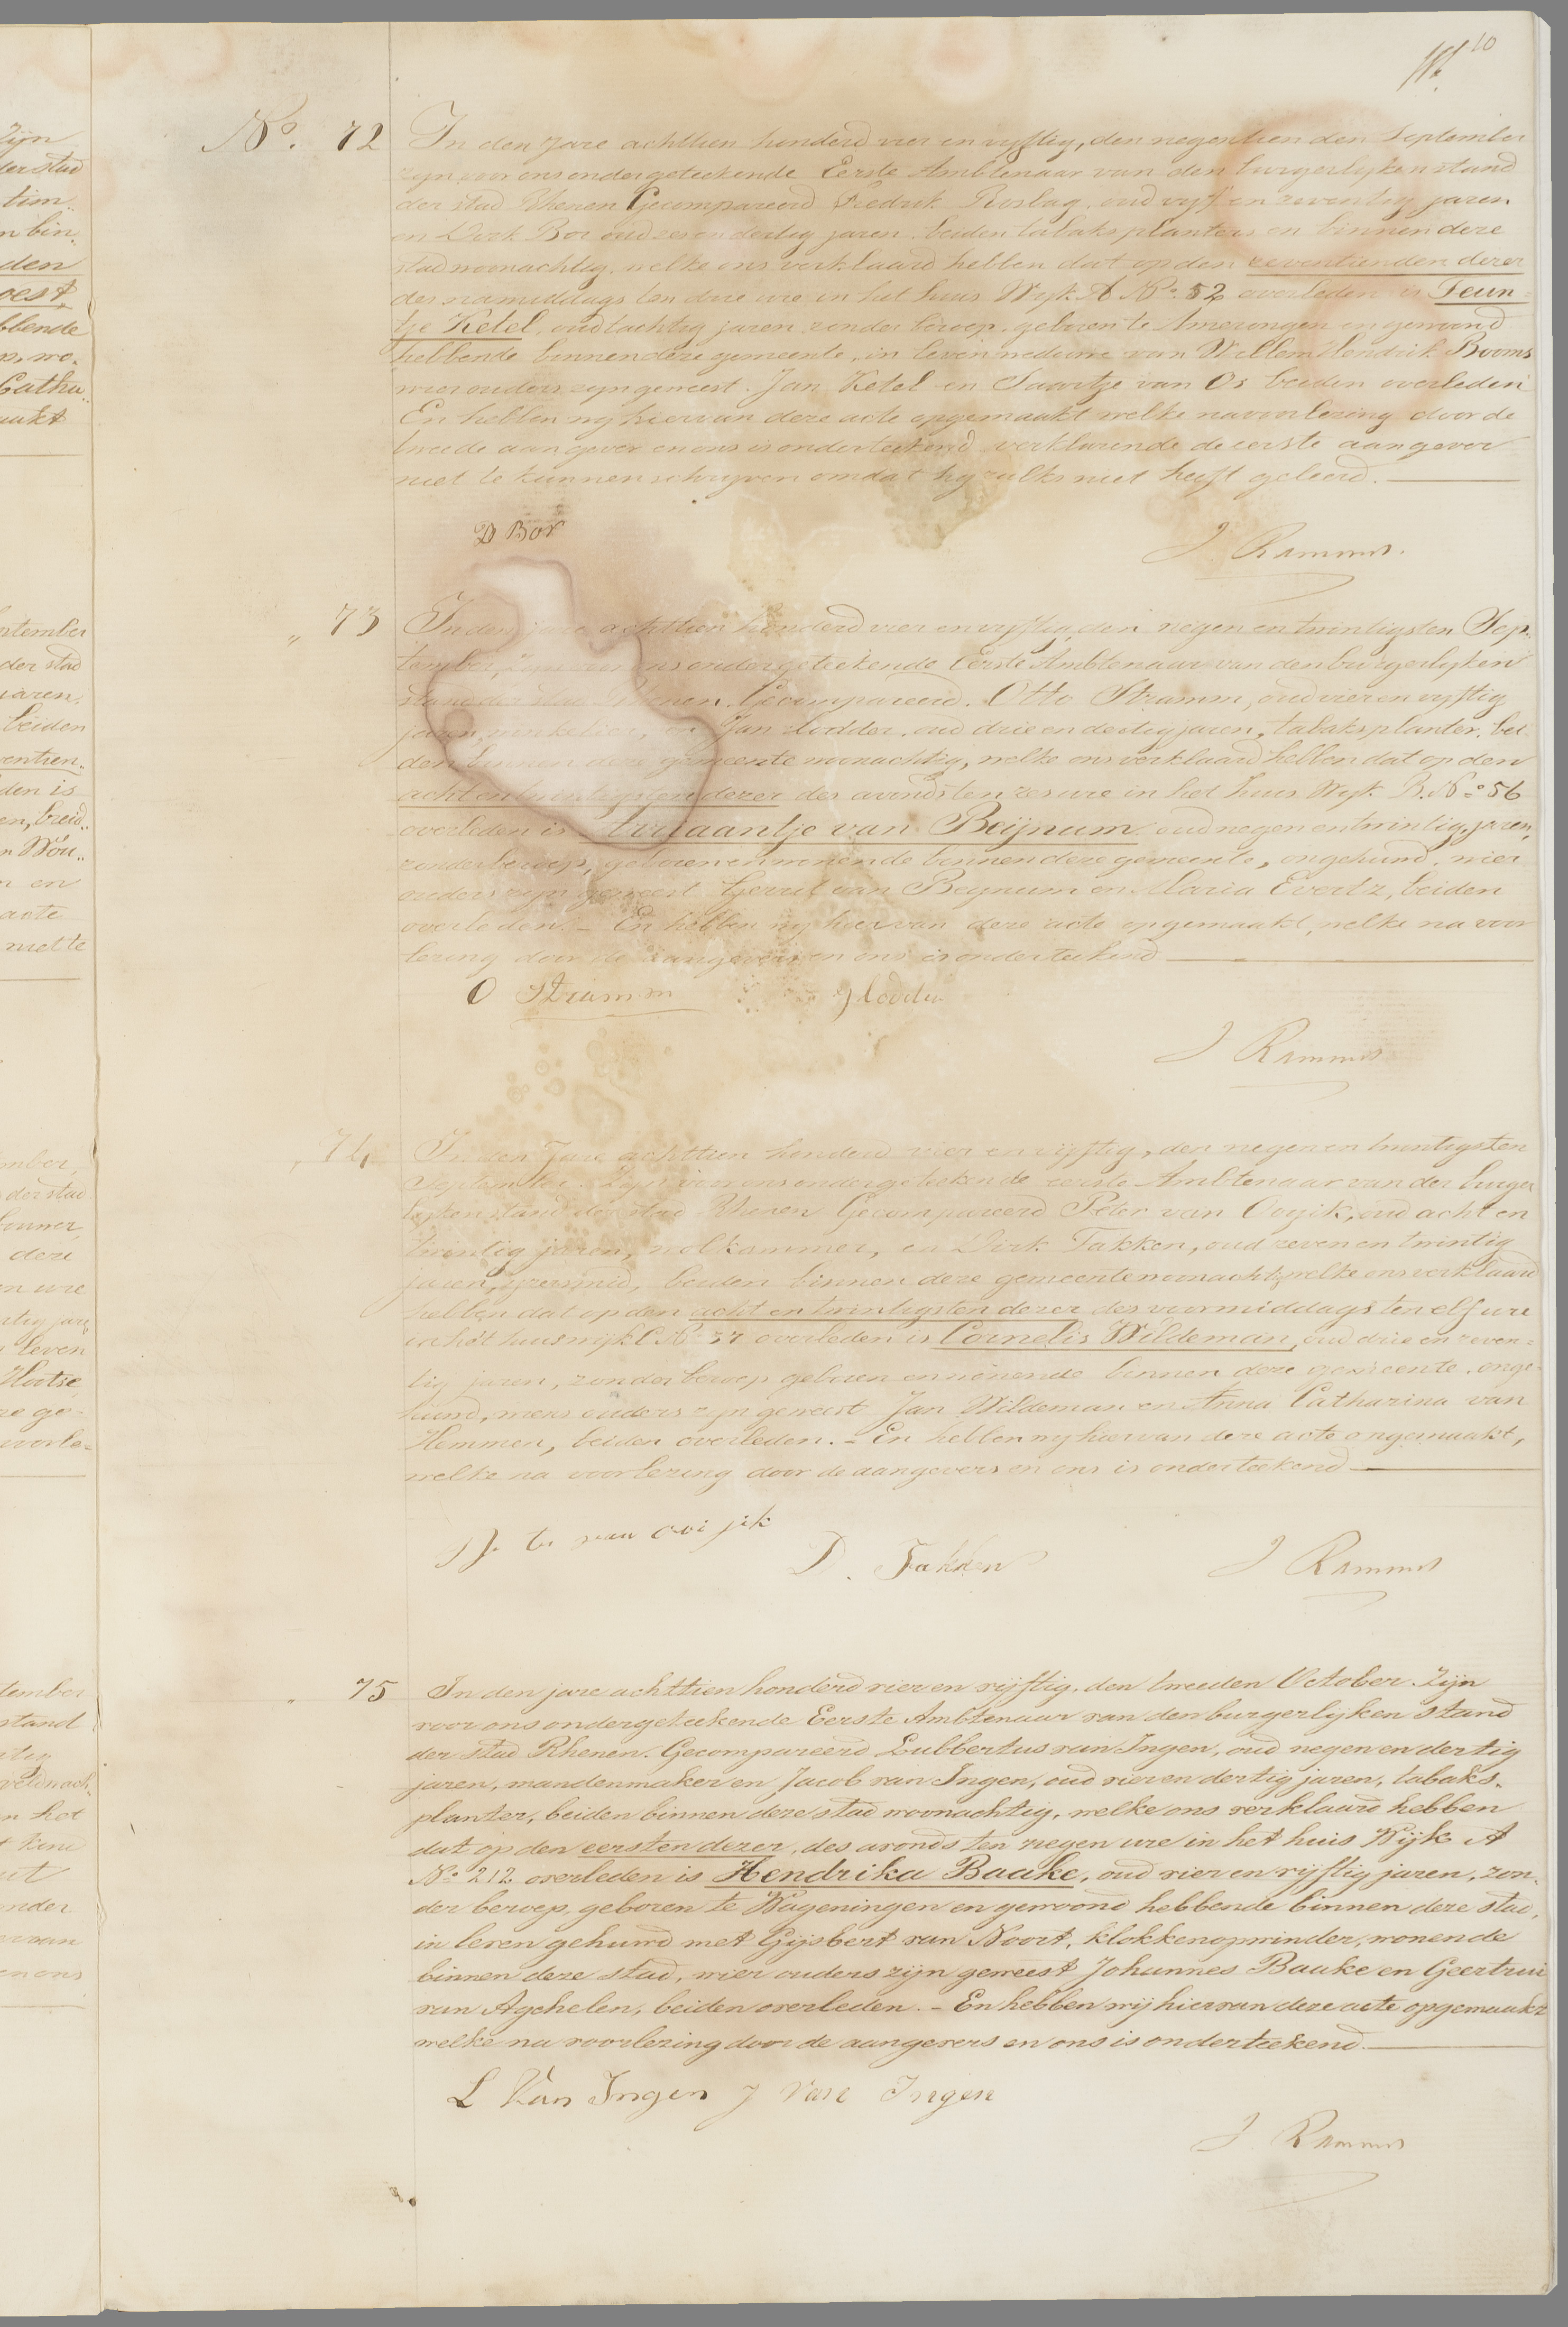 10
No. 72 In den Jare achttien honderd vier en vyftig, den negentienden September
zyn voor ons ondergeteekende Eerste Ambtenaar van den burgerlyken stand
der stad Rhenen Gecompareerd Fredrik Roslag, oud vyf en zeventig jaren
en Dirk Bor oud zes en dertig jaren, beiden tabaksplanters en binnen deze
stad woonachtig, welke ons verklaard hebben dat op den zeventienden dezer
des namiddags ten drie ure in het huis Wyk A No. 52 overleden is Teun-
tje Ketel, oud tachtig jaren zonder beroep, geboren te Amerongen en gewoond
hebbende binnen deze gemeente, in leven weduwe van Willem Hendrik Booms
wier ouders zyn geweest Jan Ketel en Saartje van Os beiden overleden
En hebben wy hiervan deze acte opgemaakt welke na voorlezing door de
tweede aangever en ons is onderteekend verklarende de eerste aangever
niet te kunnen schryven omdat hy zulks niet heeft geleerd.
D Bor
J. Rammes.
„ 73 In den jare achttien honderd vier en vyftig, den negen en twintigsten Sep-
tember, Zyn voor ons ondergeteekende Eerste Ambtenaar van den burgerlyken
stand der stad Rhenen. Gecompareerd. Otto Stramm, oud vier en vyftig
jaren, winkelier, en Jan Hodder, oud drie en dertig jaren, tabaksplanter, bei-
den binnen deze gemeente woonachtig, welke ons verklaard hebben dat op den
acht en twintigsten dezer des avonds ten zes ure in het huis Wyk B. No. 56
overleden is Adriaantje van Beijnum oud negen en twintig jaren,
zonder beroep, geboren en wonende binnen deze gemeente, ongehuwd, wier
ouders zyn geweest Gerrit van Beynum en Maria Evertz, beiden
overleden. - En hebben wy hiervan deze acte opgemaakt, welke na voor
lezing door de aangevers en ons is onderteekend
O Stramm J Hodder
J Rammes
„ 74 In den Jare achttien honderd vier en vijftig, den negen en twintigsten
September. Zyn voor ons ondergeteekende eerste Ambtenaar van den burger
lyken stand der stad Rhenen Gecompareerd Peter van Ooyik, oud acht en
twintig jaren, wolkammer, en Dirk Takken, oud zeven en twintig
jaren, yzersmid, beiden binnen deze gemeente woonachtig, welke ons verklaard
hebben dat op den acht en twintigsten dezer des voormiddags ten elf ure
in het huis wijk C No. 37 overleden is Cornelis Wildeman, oud drie en zeven-
tig jaren, zonder beroep geboren en wonende binnen deze gemeente, onge-
huwd, wiens ouders zyn geweest Jan Wildeman en Anna Catharina van
Hemmen, beiden overleden. - En hebben wy hiervan deze acte opgemaakt,
welke na voorlezing door de aangevers en ons is onderteekend
van Ooijik
D. Takken
J Rammes
„ 75 In den jare achttien honderd vier en vijftig, den tweeden October. Zijn
voor ons ondergeteekende Eerste Ambtenaar van den burgerlijken stand
der stad Rhenen. Gecompareerd Lubbertus van Ingen, oud negen en dertig
jaren, mandenmaker en Jacob van Ingen, oud vier en dertig jaren, tabaks-
planter, beiden binnen deze stad woonachtig, welke ons verklaard hebben
dat op den eersten dezer, des avonds ten negen ure in het huis Wijk A
No. 212 overleden is Hendrika Baake, oud vier en vijftig jaren, zon-
der beroep, geboren te Wageningen en gewoond hebbende binnen deze stad,
in leven gehuwd met Gijsbert van Noort, klokkenopwinder, wonende
binnen deze stad, wier ouders zijn geweest Johannes Baake en Geertrui
van Agchelen, beiden overleden. - En hebben wij hiervan deze acte opgemaakt
welke na voorlezing door de aangevers en ons is onderteekend.
L Van Ingen J Van Ingen
J Rammes